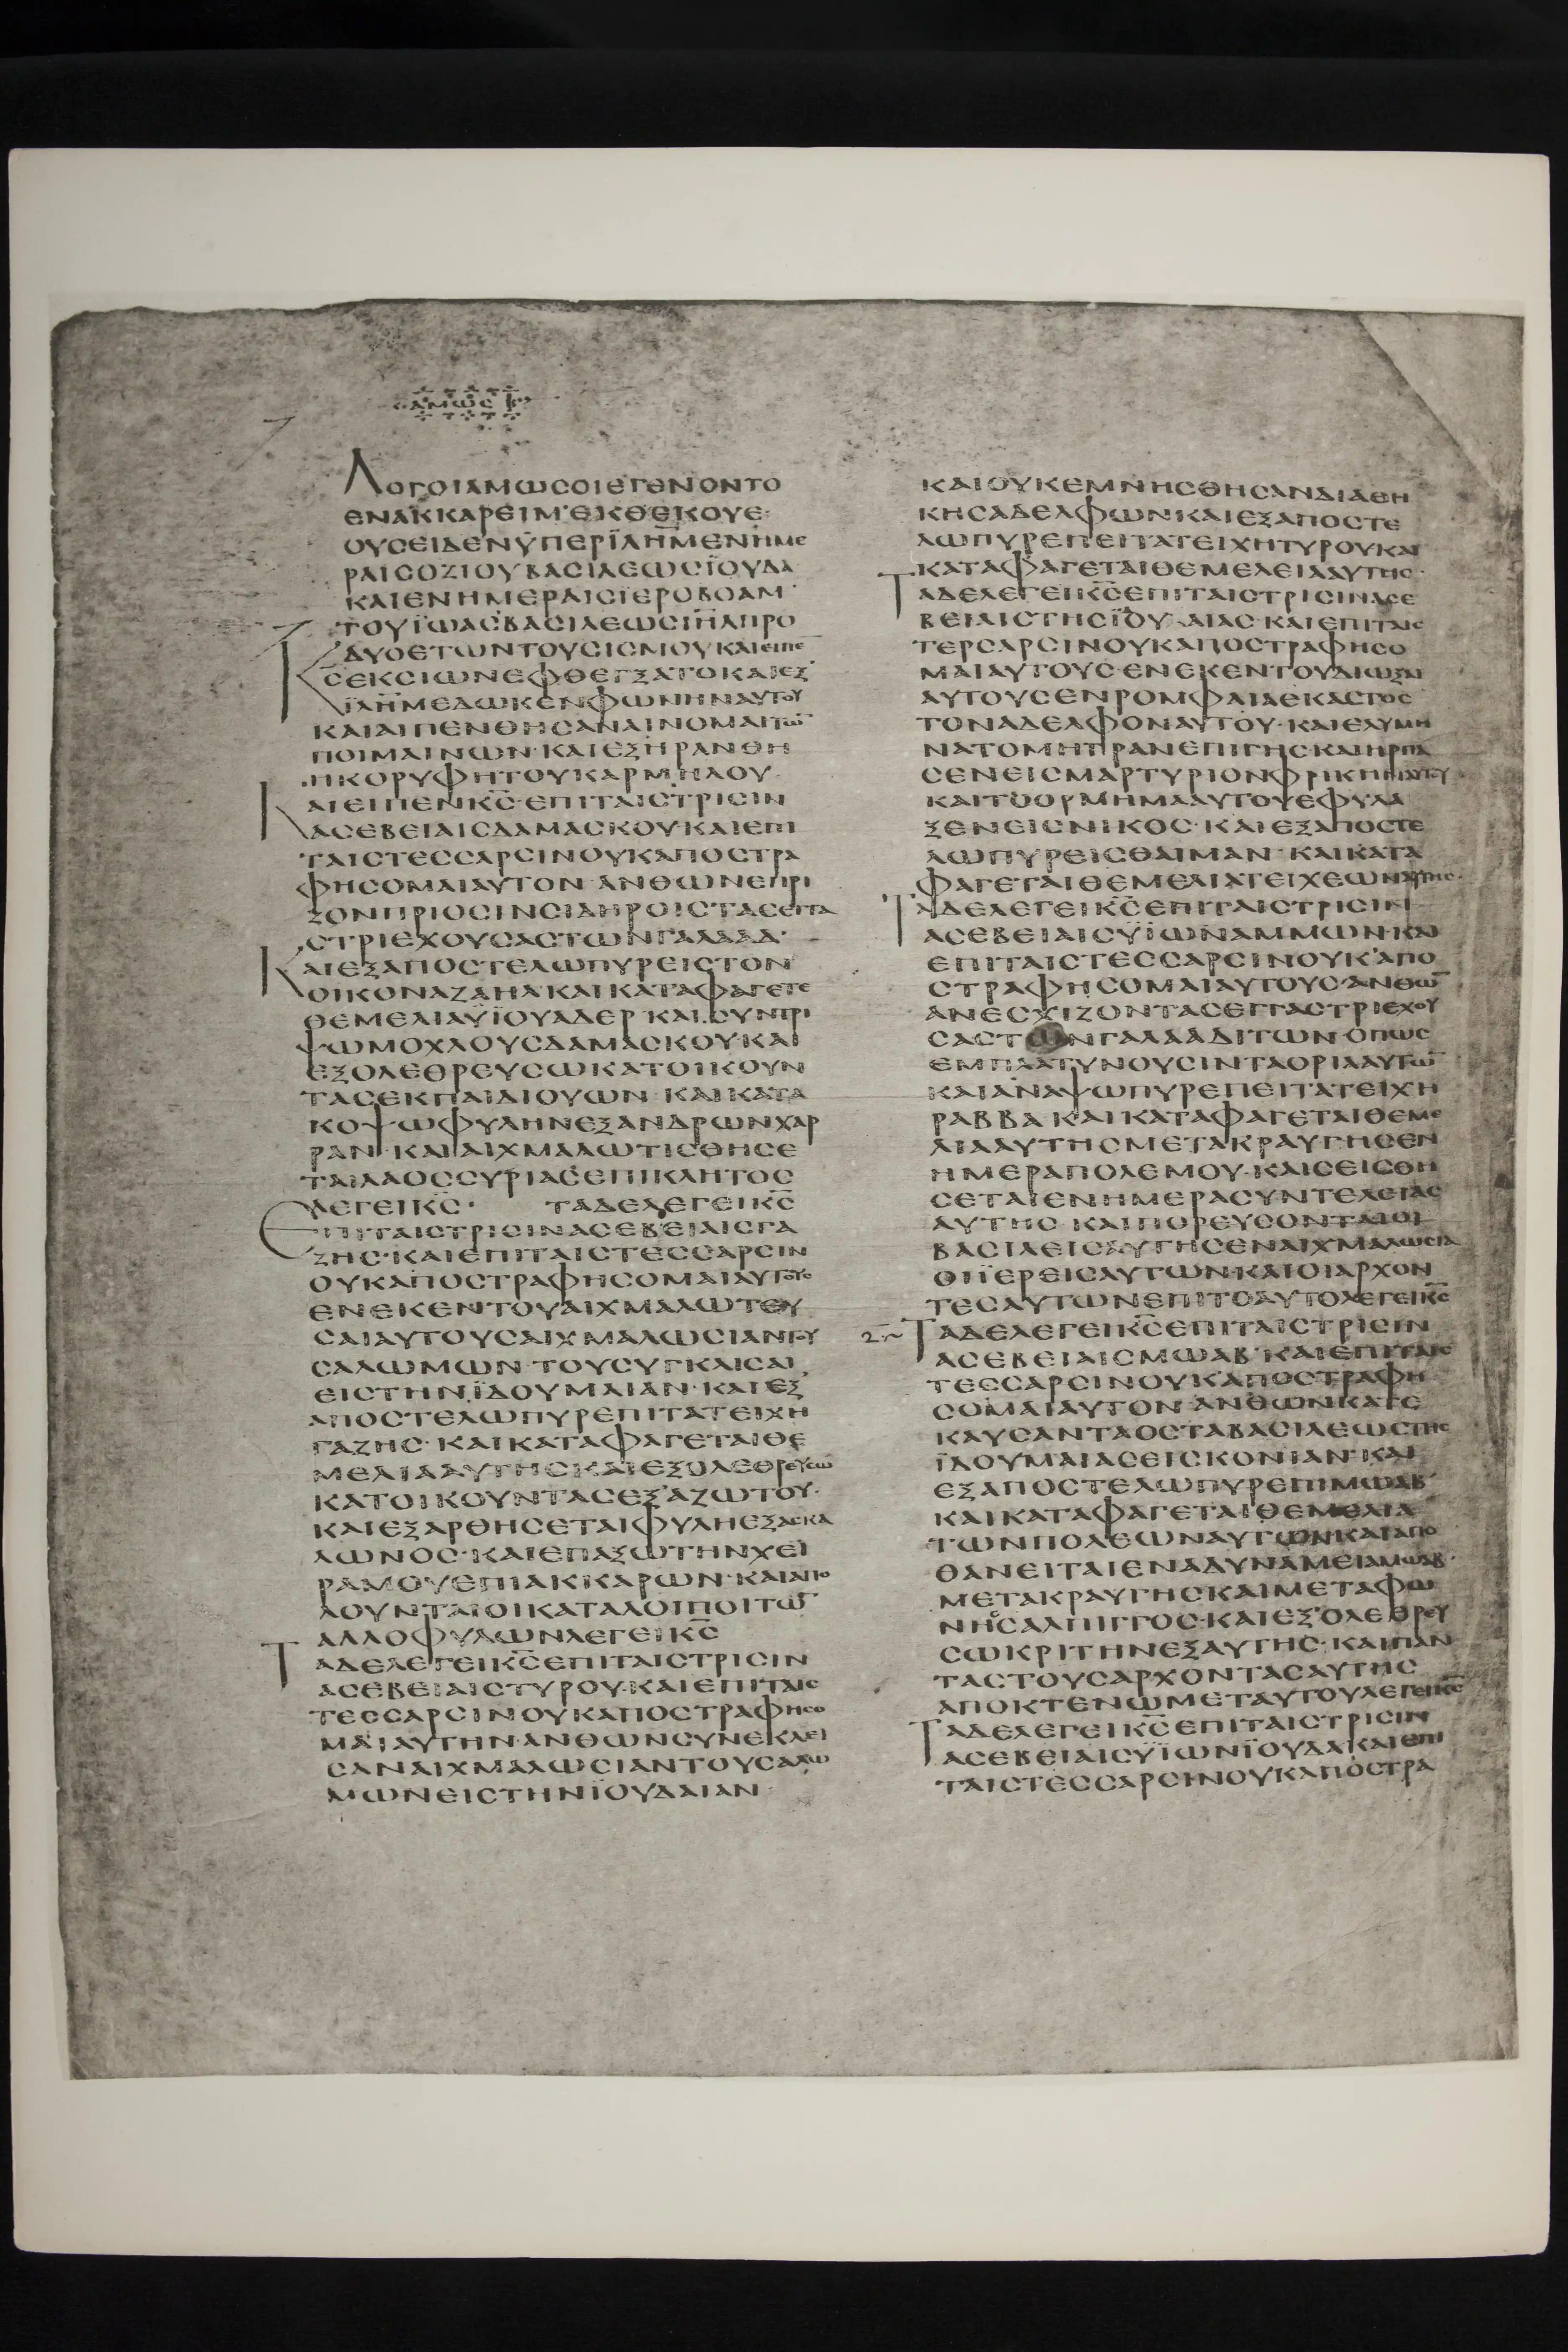 ΑΜΩС
ΛΟΓΟΙΑΜΩСΟΙΕΓΕΝΟΝΤΟ
ΕΝΑΚΚΑΡΕΙΜ·ΕΚΘΕΚΟΥΕ·
ΟΥСΕΙΔΕΝΫΠΕΡΪΛΗ̅Μ̅ΕΝΗΜΕ
ΡΑΙСΟΖΙΟΥΒΑСΙΛΕΩСΪΟΥΔΑ
ΚΑΙΕΝΗΜΕΡΑΙСΪΕΡΟΒΟΑΜ·
ΤΟΥΪΩΑСΒΑСΙΛΕΩСΙΗ̅Λ̅ΠΡΟ
ΔΥΟΕΤΩΝΤΟΥСΙСΜΟΥΚΑΙΕΙΠΕ̅
Κ̅С̅ΕΚСΙΩΝΕΦΘΕΓΞΑΤΟΚΑΙΕΞ
ΪΛΗ̅Μ̅ΕΔΩΚΕΝΦΩΝΗΝΑΥΤΟΥ
ΚΑΙΑΙΠΕΝΘΗСΑΝΑΙΝΟΜΑΙΤΩ̅
ΠΟΙΜΑΙΝΩΝ·ΚΑΙΕΞΗΡΑΝΘΗ
ΗΚΟΡΥΦΗΤΟΥΚΑΡΜΗΛΟΥ·
ΚΑΙΕΙΠΕΝΚ̅С̅·ΕΠΙΤΑΙСΤΡΙСΙΝ
ΑСΕΒΕΙΑΙСΔΑΜΑСΚΟΥΚΑΙΕΠΙ
ΤΑΙСΤΕССΑΡСΙΝΟΥΚΑΠΟСΤΡΑ
ΦΗСΟΜΑΙΑΥΤΟΝ·ΑΝΘΩΝΕΠΡΙ
ΖΟΝΠΡΙΟСΙΝСΙΔΗΡΟΙСΤΑСΕΓΓΑ
СΤΡΙΕΧΟΥСΑСΤΩΝΓΑΛΑΑΔ·
ΚΑΙΕΞΑΠΟСΤΕΛΩΠΥΡΕΙСΤΟΝ
ΟΙΚΟΝΑΖΑΗΛΚΑΙΚΑΤΑΦΑΓΕΤΕ
ΘΕΜΕΛΙΑΫΪΟΥΑΔΕΡ·ΚΑΙСΥΝΤΡΙ
ΨΩΜΟΧΛΟΥСΔΑΜΑСΚΟΥ·ΚΑΙ
ΕΞΟΛΕΘΡΕΥСΩΚΑΤΟΙΚΟΥΝ
ΤΑСΕΚΠΑΙΔΙΟΥΩΝ·ΚΑΙΚΑΤΑ
ΚΟΨΩΦΥΛΗΝΕΞΑΝΔΡΩΝΧΑΡ
ΡΑΝ·ΚΑΙΑΙΧΜΑΛΩΤΙСΘΗСΕ
ΤΑΙΛΑΟССΥΡΙΑСΕΠΙΚΛΗΤΟС
ΛΕΓΕΙΚ̅С̅· ΤΑΔΕΛΕΓΕΙΚ̅С̅
ΕΠΙΤΑΙСΤΡΙСΙΝΑСΕΒΕΙΑΙСΓΑ
ΖΗС·ΚΑΙΕΠΙΤΑΙСΤΕССΑΡСΙΝ
ΟΥΚΑΠΟСΤΡΑΦΗСΟΜΑΙΑΥΤΟΥС
ΕΝΕΚΕΝΤΟΥΑΙΧΜΑΛΩΤΕΥ
СΑΙΑΥΤΟΥСΑΙΧΜΑΛΩСΙΑΝΤΟΥ
СΑΛΩΜΩΝ·ΤΟΥСΥΓΚΛΙСΑΙ
ΕΙСΤΗΝΪΔΟΥΜΑΙΑΝ·ΚΑΙΕΞ
ΑΠΟСΤΕΛΩΠΥΡΕΠΙΤΑΤΕΙΧΗ
ΓΑΖΗС·ΚΑΙΚΑΤΑΦΑΓΕΤΑΙΘΕ
ΜΕΛΙΑΑΥΤΗСΚΑΙΕΞΟΛΕΘΡΕΥСΩ
ΚΑΤΟΙΚΟΥΝΤΑСΕΞΑΖΩΤΟΥ·
ΚΑΙΕΞΑΡΘΗСΕΤΑΙΦΥΛΗΕΞΑСΚΑ
ΛΩΝΟС·ΚΑΙΕΠΑΞΩΤΗΝΧΕΙ
ΡΑΜΟΥΕΠΙΑΚΚΑΡΩΝ·ΚΑΙΑΠΟ
ΛΟΥΝΤΑΙΟΙΚΑΤΑΛΟΙΠΟΙΤΩ̅
ΑΛΛΟΦΥΛΩΝΛΕΓΕΙΚ̅С̅
ΤΑΔΕΛΕΓΕΙΚ̅С̅ΕΠΙΤΑΙСΤΡΙСΙΝ
ΑСΕΒΕΙΑΙСΤΥΡΟΥ·ΚΑΙΕΠΙΤΑΙС
ΤΕССΑΡСΙΝΟΥΚΑΠΟСΤΡΑΦΗСΟ
ΜΑΙΑΥΤΗΝ·ΑΝΘΩΝСΥΝΕΚΛΕΙ
СΑΝΑΙΧΜΑΛΩСΙΑΝΤΟΥСΑΛΩ
ΜΩΝΕΙСΤΗΝΪΟΥΔΑΙΑΝ·
ΚΑΙΟΥΚΕΜΝΗСΘΗСΑΝΔΙΑΘΗ
ΚΗСΑΔΕΛΦΩΝΚΑΙΕΞΑΠΟСΤΕ
ΛΩΠΥΡΕΠΕΙΤΑΤΕΙΧΗΤΥΡΟΥΚΑΙ
ΚΑΤΑΦΑΓΕΤΑΙΘΕΜΕΛΕΙΑΑΥΤΗС·
ΤΑΔΕΛΕΓΕΙΚ̅С̅ΕΠΙΤΑΙСΤΡΙСΙΝΑСΕ
ΒΕΙΑΙСΤΗСΪΔΟΥΜΑΙΑС·ΚΑΙΕΠΙΤΑΙС
ΤΕΡСΑΡСΙΝΟΥΚΑΠΟСΤΡΑΦΗСΟ
ΜΑΙΑΥΤΟΥС·ΕΝΕΚΕΝΤΟΥΔΙΩΞΑΙ
ΑΥΤΟΥСΕΝΡΟΜΦΑΙΑΕΚΑСΤΟС
ΤΟΝΑΔΕΛΦΟΝΑΥΤΟΥ·ΚΑΙΕΛΥΜΗ
ΝΑΤΟΜΗΤΡΑΝΕΠΙΓΗС·ΚΑΙΗΡΠΑ
СΕΝΕΙСΜΑΡΤΥΡΙΟΝΦΡΙΚΗΝΑΥΤΟΥ
ΚΑΙΤΟΟΡΜΗΜΑΑΥΤΟΥΕΦΥΛΑ
ΞΕΝΕΙСΝΙΚΟС·ΚΑΙΕΞΑΠΟСΤΕ
ΛΩΠΥΡΕΙСΘΑΙΜΑΝ·ΚΑΙΚΑΤΑ
ΦΑΓΕΤΑΙΘΕΜΕΛΙΑΤΕΙΧΕΩΝΑΥΤΗС·
ΤΑΔΕΛΕΓΕΙΚ̅С̅ΕΠΙΤΑΙСΤΡΙСΙΝ
ΑСΕΒΕΙΑΙСΥΪΩΝΑΜΜΩΝ·ΚΑΙ
ΕΠΙΤΑΙСΤΕССΑΡСΙΝΟΥΚΑΠΟ
СΤΡΑΦΗСΟΜΑΙΑΥΤΟΥС·ΑΝΘΩ̅
ΑΝΕСΧΙΖΟΝΤΑСΕΓΓΑСΤΡΙΕΧΟΥ
СΑСΤΩΝΓΑΛΑΑΔΙΤΩΝ·ΟΠΩС
ΕΜΠΛΑΤΥΝΟΥСΙΝΤΑΟΡΙΑΑΥΤΩ̅
ΚΑΙΑΝΑΨΩΠΥΡΕΠΕΙΤΑΤΕΙΧΗ
ΡΑΒΒΑ·ΚΑΙΚΑΤΑΦΑΓΕΤΑΙΘΕΜΕ
ΛΙΑΑΥΤΗСΜΕΤΑΚΡΑΥΓΗСΕΝ
ΗΜΕΡΑΠΟΛΕΜΟΥ·ΚΑΙСΕΙСΘΗ
СΕΤΑΙΕΝΗΜΕΡΑСΥΝΤΕΛΕΙΑС
ΑΥΤΗС·ΚΑΙΠΟΡΕΥСΟΝΤΑΙΟΙ
ΒΑСΙΛΕΙСΑΥΤΗСΕΝΑΙΧΜΑΛΩСΙΑ
ΟΙΪΕΡΕΙСΑΥΤΩΝ·ΚΑΙΟΙΑΡΧΟΝ
ΤΕСΑΥΤΩΝΕΠΙΤΟΑΥΤΟΛΕΓΕΙΚ̅С̅
ΤΑΔΕΛΕΓΕΙΚ̅С̅ΕΠΙΤΑΙСΤΡΙСΙΝ
ΑСΕΒΕΙΑΙСΜΩΑΒ·ΚΑΙΕΠΙΤΑΙС
ΤΕССΑΡСΙΝΟΥΚΑΠΟСΤΡΑΦΗ
СΟΜΑΙΑΥΤΟΝ·ΑΝΘΩΝΚΑΤΕ
ΚΑΥСΑΝΤΑΟСΤΑΒΑСΙΛΕΩСΤΗС
ΪΔΟΥΜΑΙΑСΕΙСΚΟΝΙΑΝ·ΚΑΙ
ΕΞΑΠΟСΤΕΛΩΠΥΡΕΠΙΜΩΑΒ·
ΚΑΙΚΑΤΑΦΑΓΕΤΑΙΘΕΜΕΛΙΑ
ΤΩΝΠΟΛΕΩΝΑΥΤΩΝΚΑΙΑΠΟ
ΘΑΝΕΙΤΑΙΕΝΑΔΥΝΑΜΕΙΑΜΩΑΒ·
ΜΕΤΑΚΡΑΥΓΗСΚΑΙΜΕΤΑΦΩ
ΝΗССΑΛΠΙΓΓΟС·ΚΑΙΕΞΟΛΕΘΡΕΥ
СΩΚΡΙΤΗΝΕΞΑΥΤΗС·ΚΑΙΠΑΝ
ΤΑСΤΟΥСΑΡΧΟΝΤΑСΑΥΤΗС
ΑΠΟΚΤΕΝΩΜΕΤΑΥΤΟΥΛΕΓΕΙΚ̅С̅
ΤΑΔΕΛΕΓΕΙΚ̅С̅ΕΠΙΤΑΙСΤΡΙСΙΝ
ΑСΕΒΕΙΑΙСΥΪΩΝΪΟΥΔΑΚΑΙΕΠΙ
ΤΑΙСΤΕССΑΡСΙΝΟΥΚΑΠΟСΤΡΑ